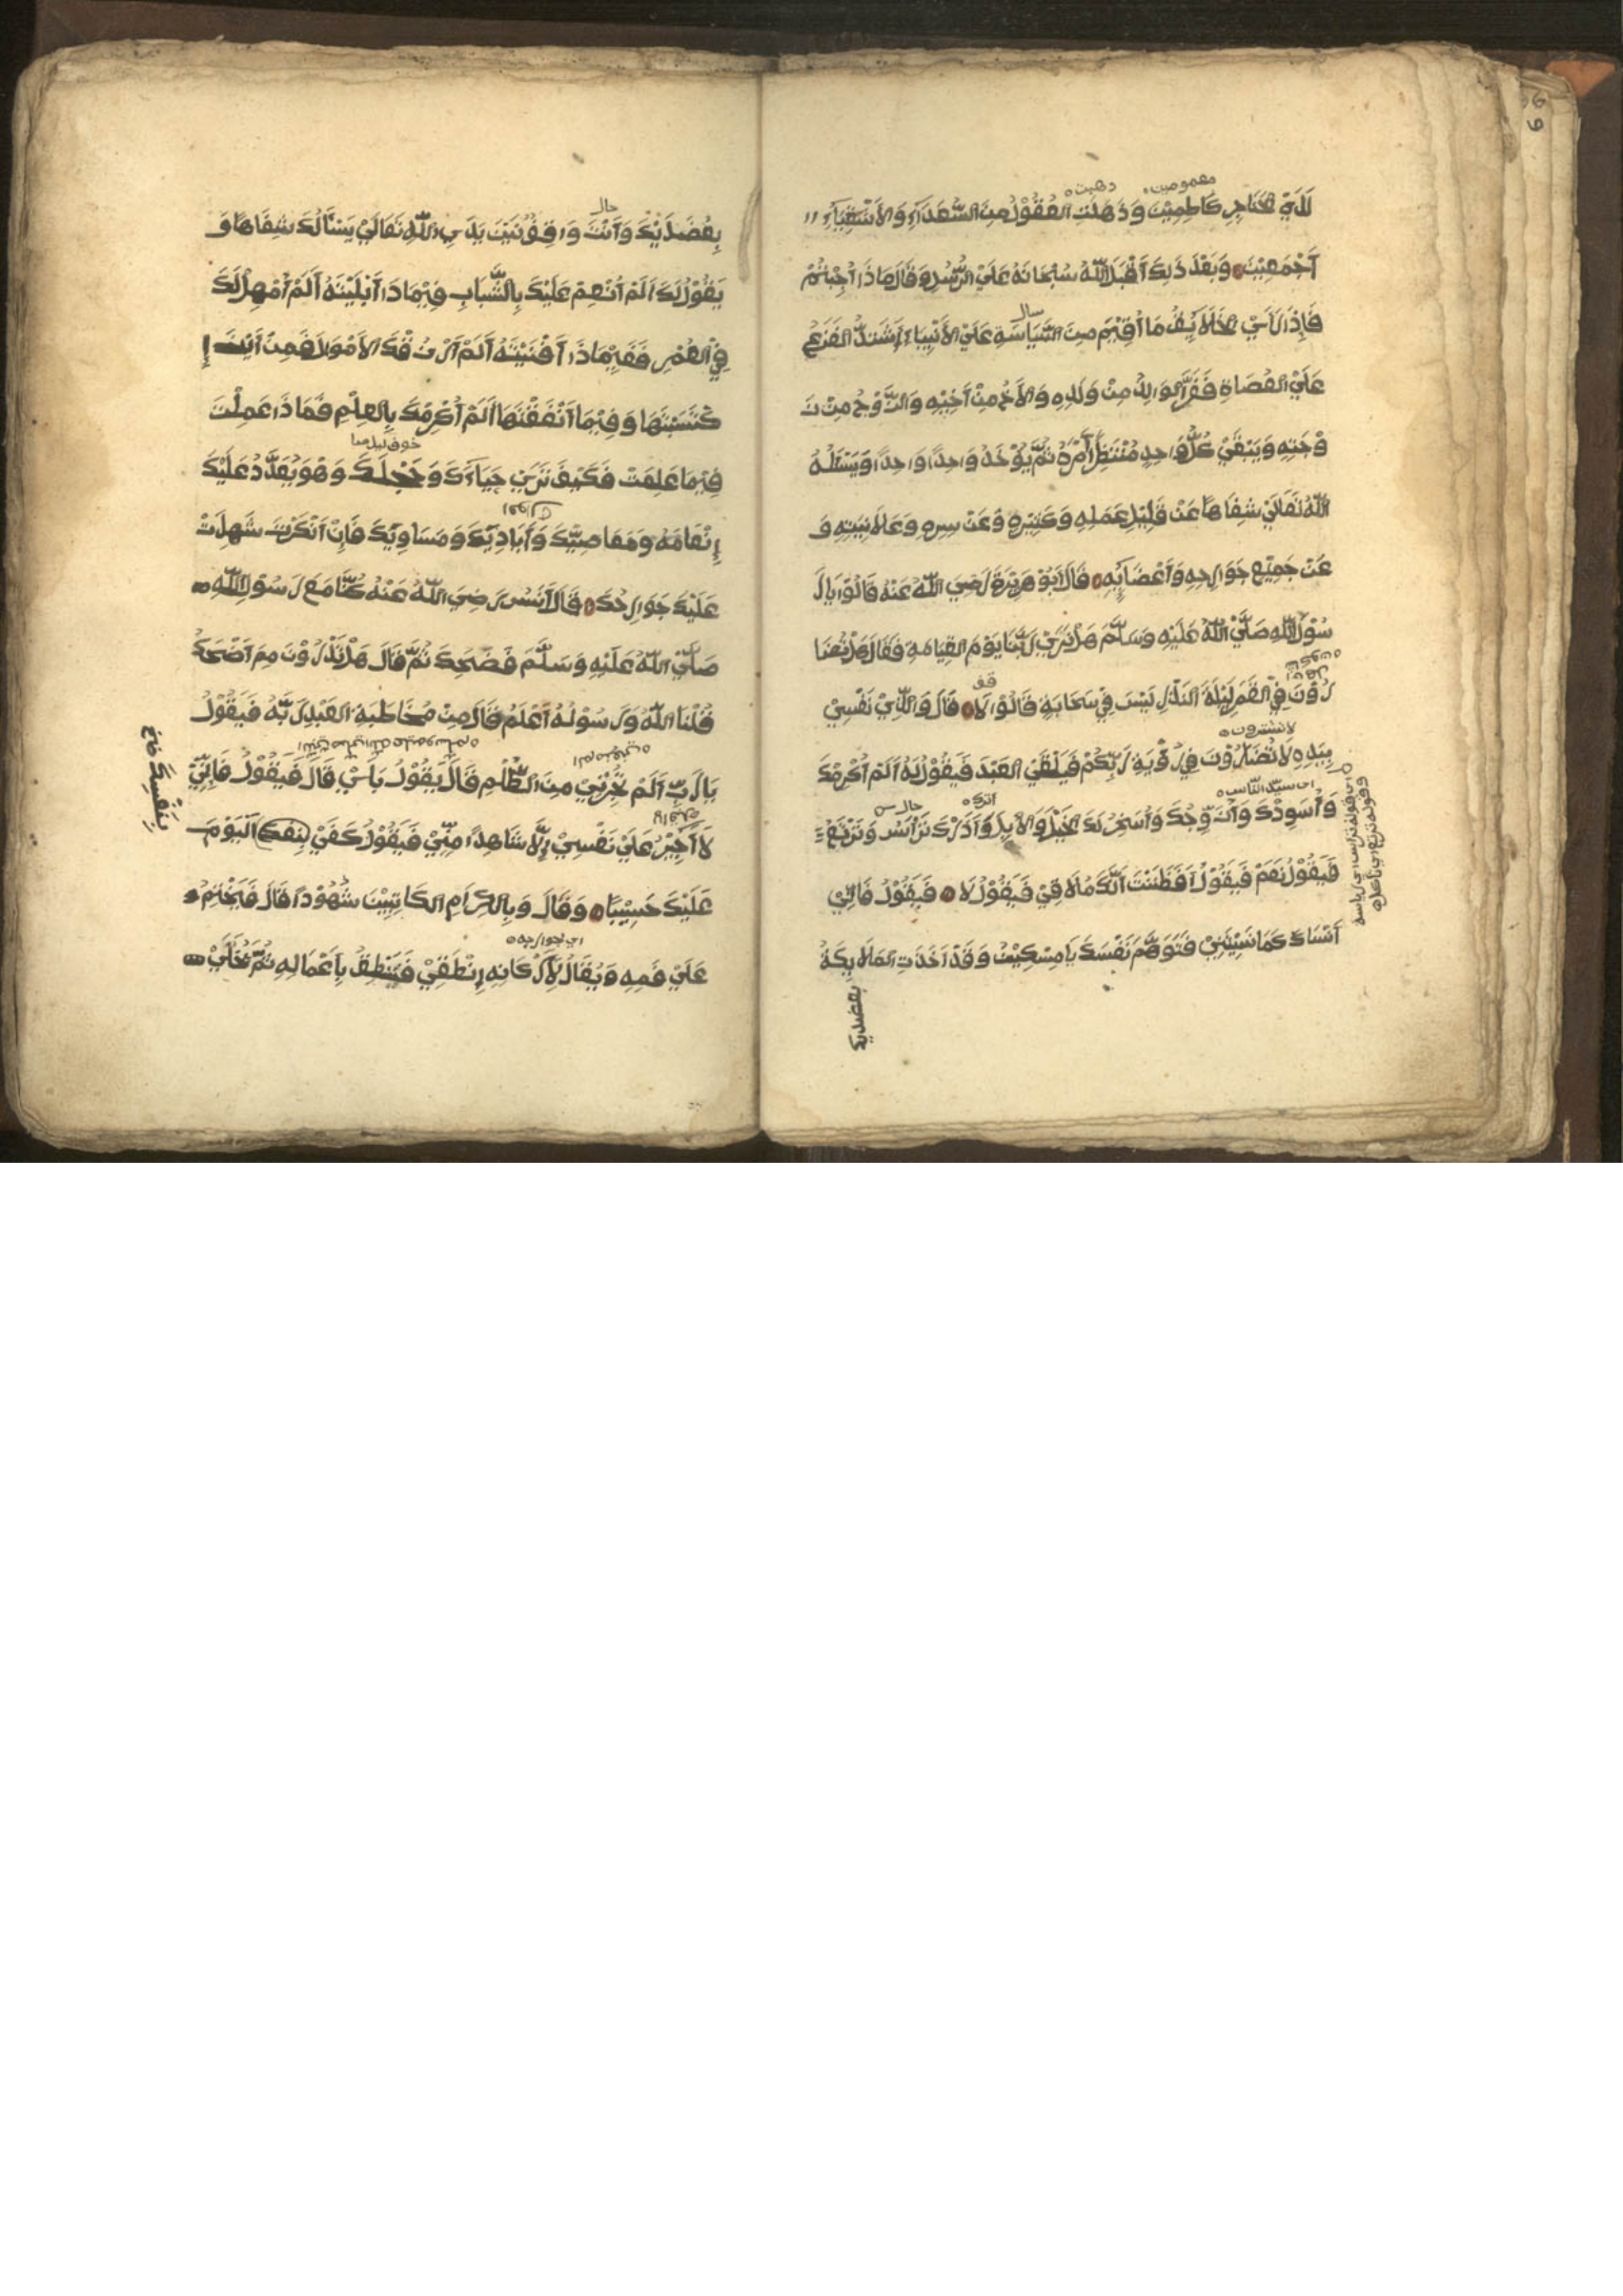 معمومين
ذهبت
لَدَيِ الحَنَاجِرِ كَاظِمِيْنَ وَذَهَلَتِ العُقُوْلُ مِنَ السُّعَدَآءِ وَالأَشْقِيَآءِ
أَجْمَعِيْنَ وَبَعْدَ ذَلِكَ أَقْبَلَ اللّٰهُ سُبْحَانَهُ عَلَيْ الرُّسُلِ وَقَالَ مَاذَا أُجِبْتُمْ
فَإِذَا رَأَيْ الخَلَايِفُ مَا أُقِيْمَ مِنَ السِّيَاسَةِ عَلَيْ الأَنْبِيَاءِ اَشْتَدَّ الفَزَعُ
عَلَيْ العُصَاةِ فَفَرَّ الوَالِدُ مِنْ وَلَدِهِ وَالأَخُ مِنْ أَخِيْهِ وَالزَّوْجُ مِنْ زَ
وْجَتِهِ وَيَبْقَيْ كُلُّ وَاحِدٍ مُنْتَظِرًا أَمْرَهُ ثُمَّ يُؤْخَذُ وَاحِدًا وَاحِدًا وَيَسْئَلُهُ
اللّٰهُ تَعَالَيْ شِفَاهًا عَنْ قَلِيْلِ عَمَلِهِ وَكَثِيْرِهِ وَعَنْ سِرِهِ وَعَلَانِيَتِهِ وَ
عَنْ جَمِيْعِ جَوَارِحِهِ وَأَعْضَايِهِ قَالَ أَبُوْ هُرَيْرَةَ رَضِيَ اللّٰهُ عَنْهُ قَالُوْا يَا رَ
سُوْلَ اللّٰهِ صَلَّيْ اللّٰهُ عَلَيْهِ وَسَلَّمَ هَلْ نَرَيْ رَبَّنَا يَوْمَ القِيَامَةِ فَقَالَ هَلْ تُضَا
رُوْنَ فِيْ القَمَرِ لَيْلَةَ البَدْرِ لَيْسَ فِيْ سَحَابَةٍ قَالُوْا لَا قَالَ وَالَّذِيْ نَفْسِيْ
بِيَدِهِ لَا تُضَارُوْنَ فِيْ رُؤْيَةِ رَبِّكُمْ فَيَلْقَيْ العَبْدَ فَيَقُوْلُ لَهُ أَلَمْ أُكْرِمْكَ
اي سيد الناس
وَأُسَوِدْكَ وَأُزَوِّجْكَ وَأُسَخِرْ لَكَ الخَيْلَ وَالأِبِلَ وَأَذَرْكَ تَرْأَسُ وَتَرْبَعُ
فَيَقُوْلُ نَعَمْ فَيَقُوْلُ أَفَظَنَنْتَ أَنَّكَ مُلَاقِيْ فَيَقُوْلُ لَا فَيَقُوْلُ فَإِنِّي
أَنْسَاكَ كَمَا نَسِيْتَنِيْ فَتَوَهَّمْ نَفْسَكَ يَا مِسْكِيْنُ وَقَدْ أَخَذَتِ المَلَايِكَةُ
بعضديك
حال
بِعَضُدَيْكَ وَأَنْتَ وَاقِفٌ بَيْنَ يَدَيِ اللّٰهِ تَعَالَيْ يَسْأَلُكَ شِفَاهًا وَ
يَقُوْلُ لَكَ أَلَمْ أُنْعِمْ عَلَيْكَ بِالشَّبَابِ فَفِيْمَاذَا أَبْلَيْتَهُ أَلَمْ أُمْهِلْ لَكَ
فِيْ العُمْرِ فَفِيْمَاذَا أَفْنَيْتَهُ أَلَمْ أَرْزُقْكَ الأَمْوَلَ فَمِنْ أَيْنَ إ
كْتَسَبْتَهَا وَفِيْمَا أَنْفَقْتَهَا أَلَمْ أُكْرِمْكَ بِالعِلْمِ فَمَاذَا عَمِلْتَ
فِيْمَا عَلِمْتَ فَكَيْفَ تَرَيْ حَيَاءَكَ وَخَجْلَكَ وَهْوَ يُعَدِّدُ عَلَيْكَ
إِنْعَامَهُ وَمَعَاصِيَّكَ وَأَيَادِيَكَ وَمَسَاوِيَكَ فَإِنْ أَنْكَرْتَ شَهِدَتْ
عَلَيْكَ جَوَارِحُكَ قَالَ أَنَسُ رَضِيَ اللّٰهُ عَنْهُ كُنَّا مَعَ رَسُوْلِ اللّٰهِ
صَلَّيْ اللّٰهُ عَلَيْهِ وَسَلَّمَ فَضَحِكَ ثُمَّ قَالَ هَلْ تَدْرُوْنَ مِمَ أَضْحَكُ
قُلْنَا اللّٰهُ وَرَسُوْلُهُ أَعْلَمُ قَالَ مِنْ مُخَاطَبَةِ العَبْدِ رَبَّهُ فَيَقُوْلُ
يَا رَبِّ أَلَمْ تُجِرْنِيْ مِنَ الظُّلْمِ قَالَ يَقُوْلُ بَلَيْ قَالَ فَيَقُوْلُ فَإِنِّيْ
لَا أُجِيْزُ عَلَيْ نَفْسِيْ إِلَّا شَاهِدًا مِنِّيْ فَيَقُوْلُ كَفَيْ بِنَفْكَ اَليَوْمَ
بِنَفْسِكَ
عَلَيْكَ حَسِيْبًا وَقَالَ وَبِالكِرَامِ الكَاتِبِيْنَ شُهُوْدًا قَالَ فَيَخْتِمُ
اي لجوارحه
عَلَيْ فَمِهِ وَيُقَالُ لِأَرْكَانِهِ إِنْطَقِيْ فَيَنْطِقُ بِأَعْمَالِهِ ثُمَّ يُخَلَّيْ